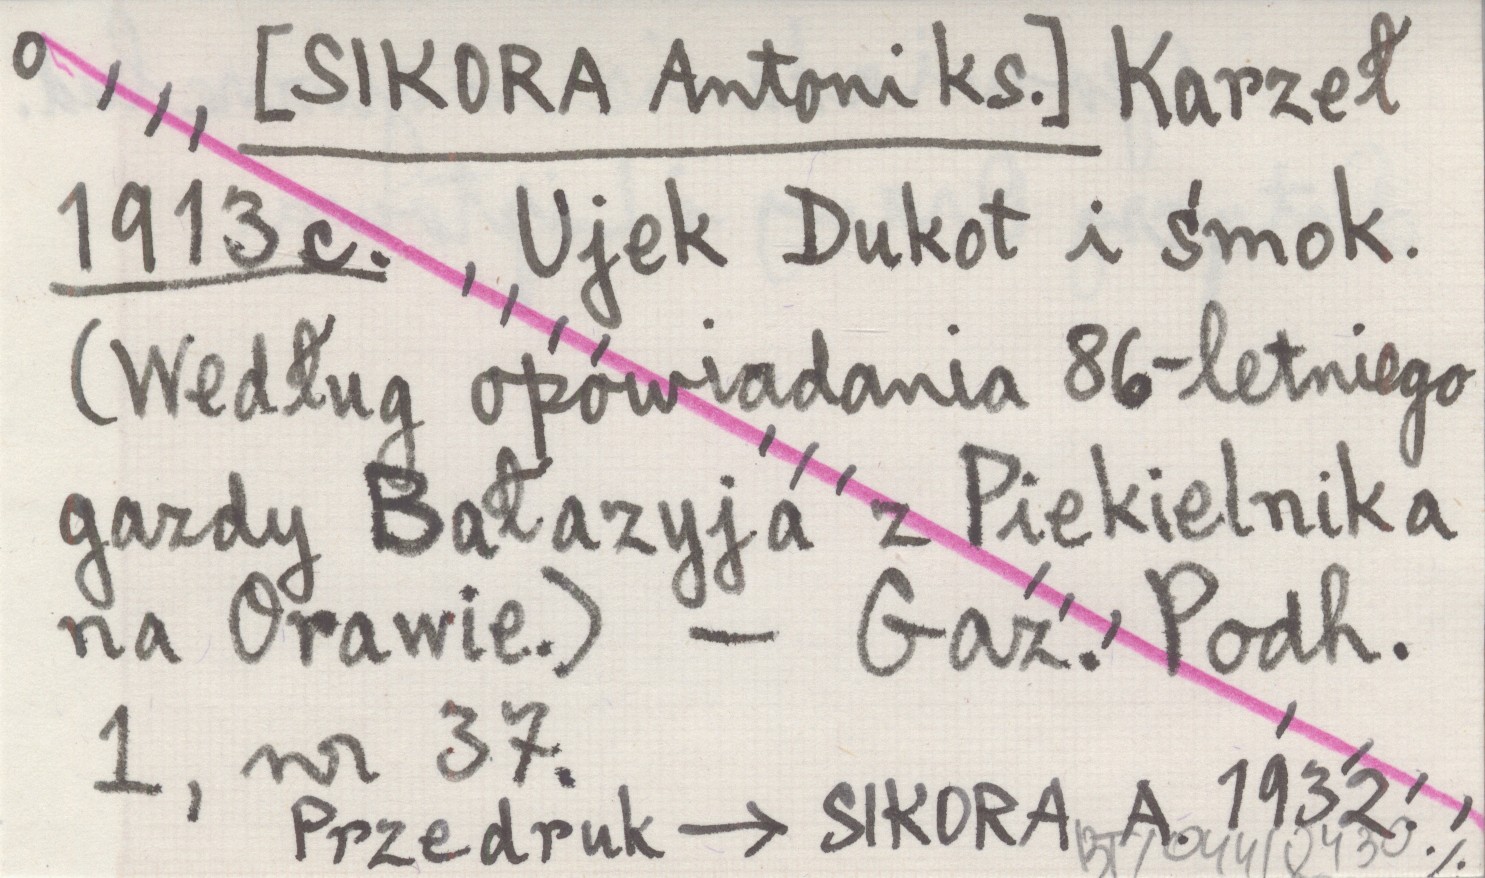 [SIKORA Antoni ks.] Karzeł
1913c. Ujek Dukot i śmok.
(Według opowiadania 86-letniego
gazdy Bałazyja z Piekielnika
na Orawie.) — Gaz. Podh.
1, nr 37.
Przedruk → SIKORA A. 1932.
./.